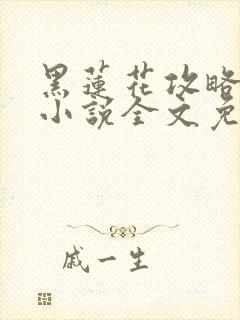 黑蓮花攻略
小說全文免
戚一生